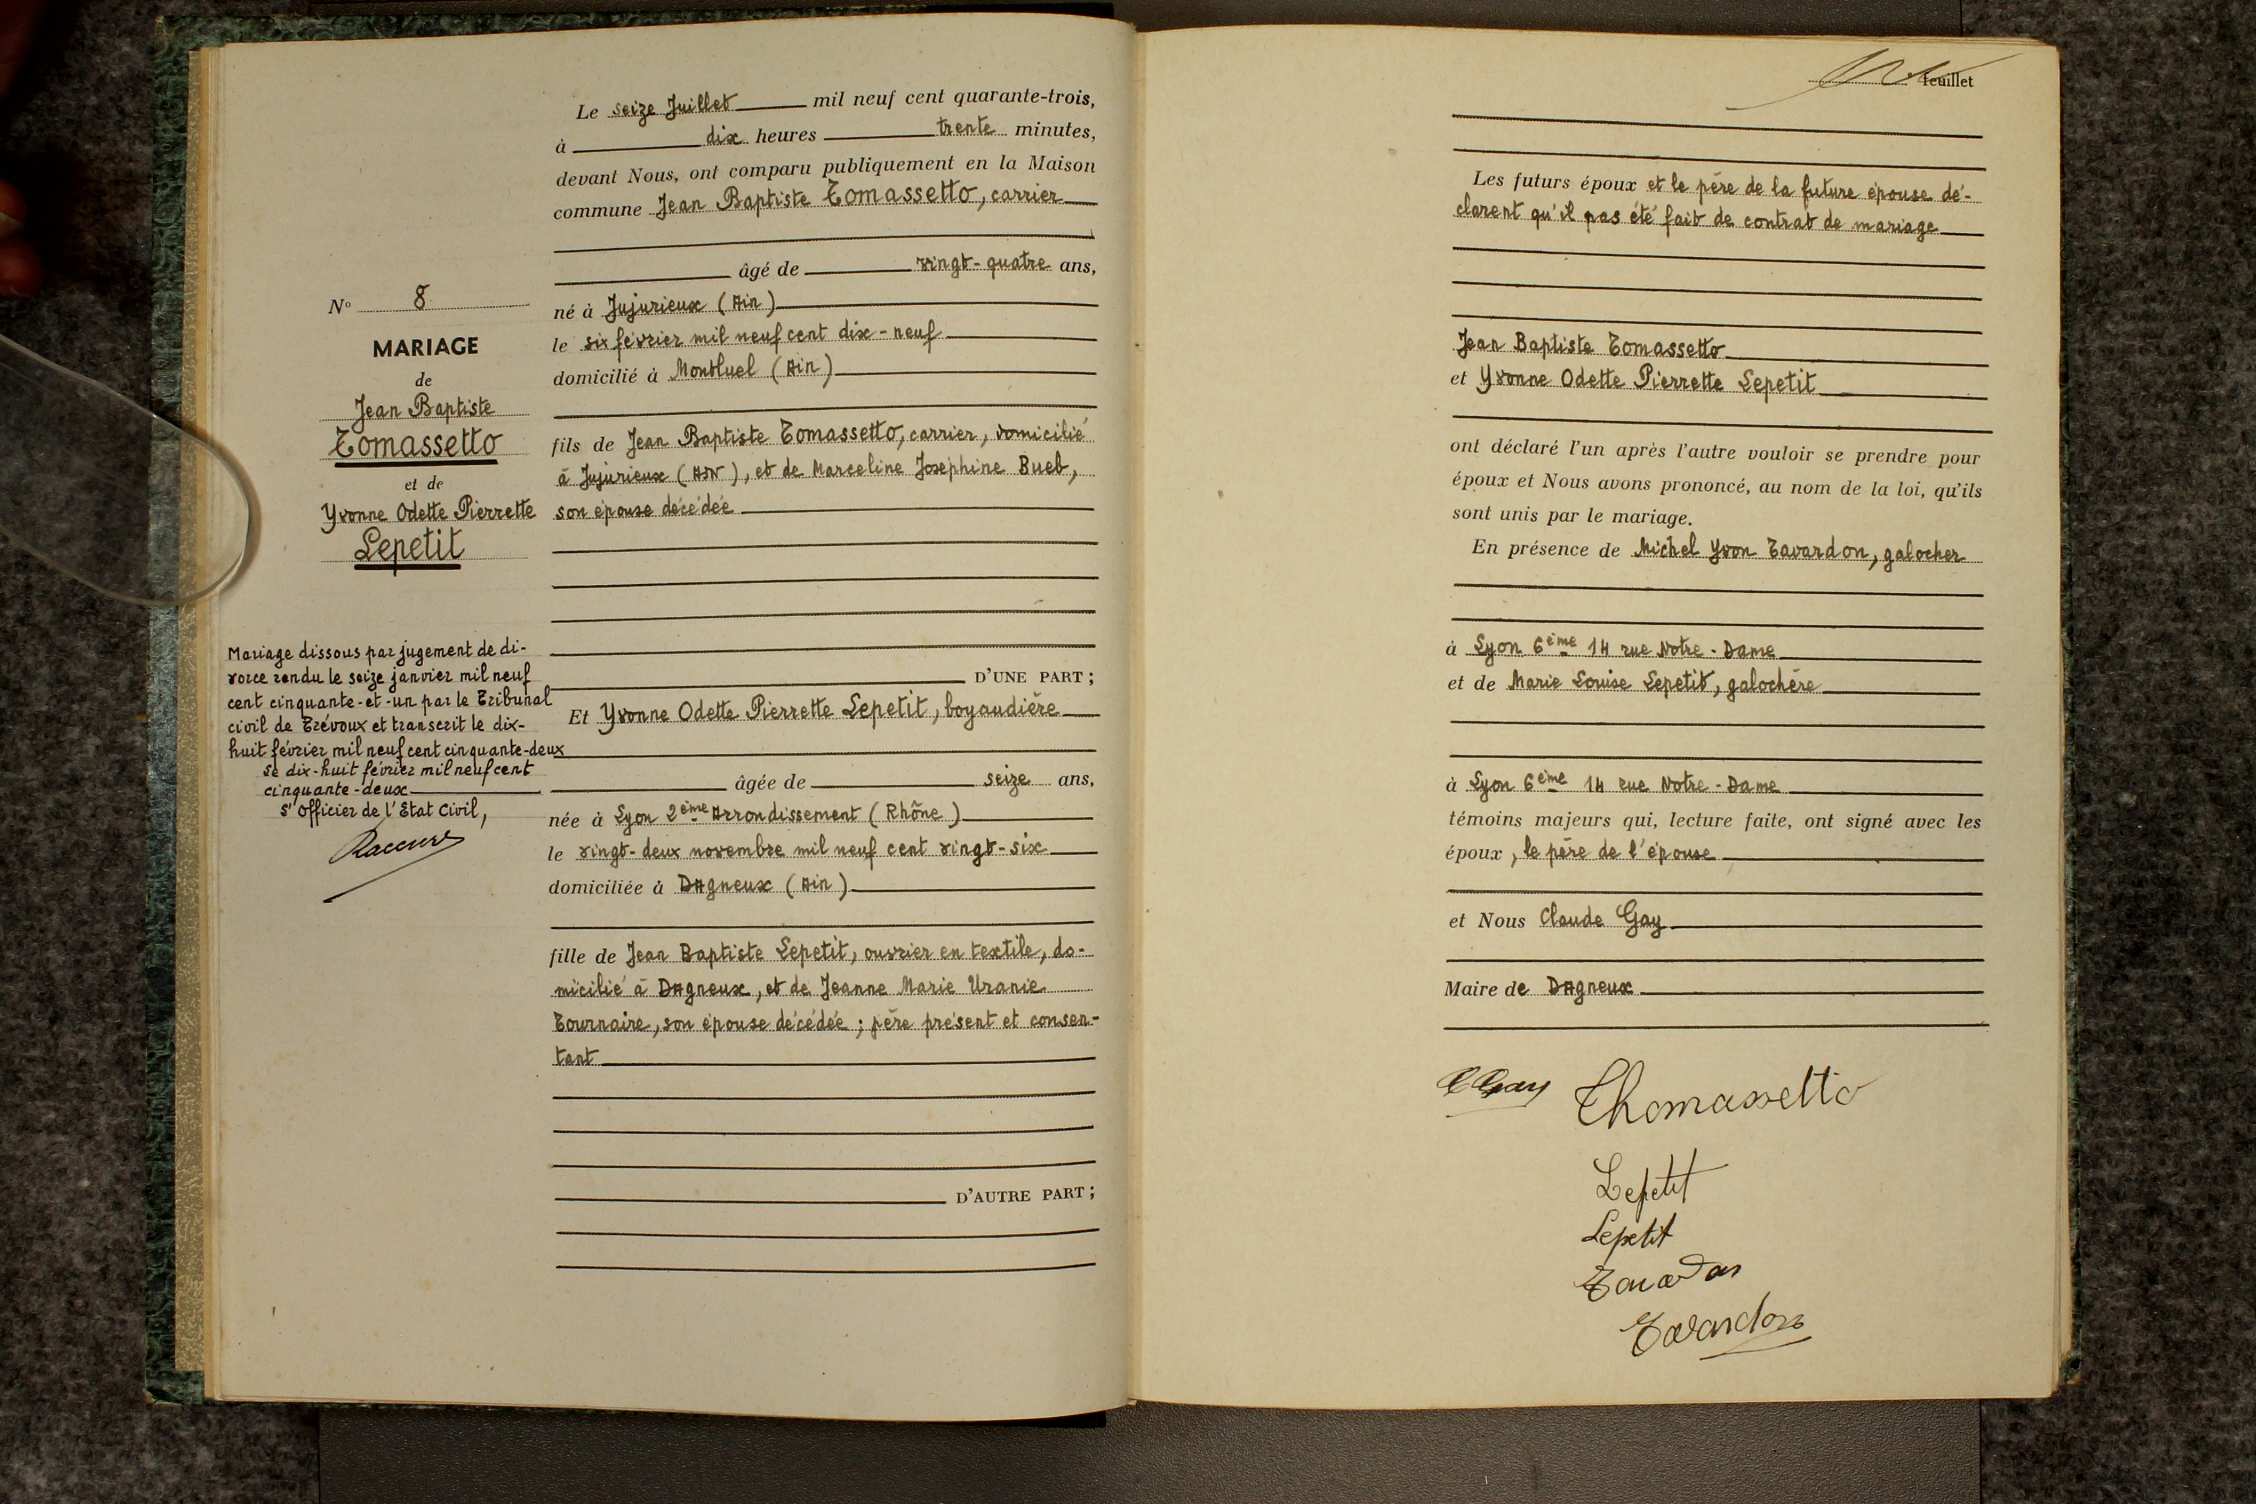 N° 8
MARIAGE
de
Jean Baptiste
Tomassetto
et de
Yvonne Odette Pierrette
Lepetit
Mariage dissous par jugement de di-
vorce rendu le seize janvier mil neuf
cent cinquante-et-un par le Tribunal
civil de Trévoux et transcrit le dix-
huit février mil neuf cent cinquante-deux
Le dix-huit février mil neuf cent
cinquante-deux
L'Officier de l'Etat Civil,
Le seize Juillet mil neuf cent quarante-trois,
à dix heures trente minutes,
devant Nous, ont comparu publiquement en la Maison
commune Jean Baptiste Tomassetto, carrier
âgé de vingt-quatre ans,
né à Jujurieux (Ain)
le six février mil neuf cent dix-neuf
domicilié à Montluel (Ain)
fils de Jean Baptiste Tomassetto, carrier, domicilié
à Jujurieux (AIN), et de Marceline Josephine Bueb,
son épouse décédée
D'UNE PART ;
Et Yvonne Odette Pierrette Lepetit, boyaudière
âgée de seize ans,
née à Lyon 2ème Arrondissement (Rhône)
le vingt-deux novembre mil neuf cent vingt-six
domiciliée à DAgneux (Ain)
fille de Jean Baptiste Lepetit, ouvrier en textile, do-
micilié à DAgneux, et de Jeanne Marie Uranie
Tournaire, son épouse décédée ; père présent et consen-
tant
D'AUTRE PART ;
feuillet
Les futurs époux et le père de la future épouse dé-
clarent qu'il pas été fait de contrat de mariage
Jean Baptiste Tomassetto
et Yvonne Odette Pierrette Lepetit
ont déclaré l'un après l'autre vouloir se prendre pour
époux et Nous avons prononcé, au nom de la loi, qu'ils
sont unis par le mariage.
En présence de Michel Yvon Tavardon, galocher
à Lyon 6ème 14 rue Notre-Dame
et de Marie Louise Lepetit, galochère
à Lyon 6ème 14 rue Notre-Dame
témoins majeurs qui, lecture faite, ont signé avec les
époux, le père de l'épouse
et Nous Claude Gay
Maire de DAgneux
C Gay Thomassetto
Lepetit
Lepetit
Tavardon
Tavardon